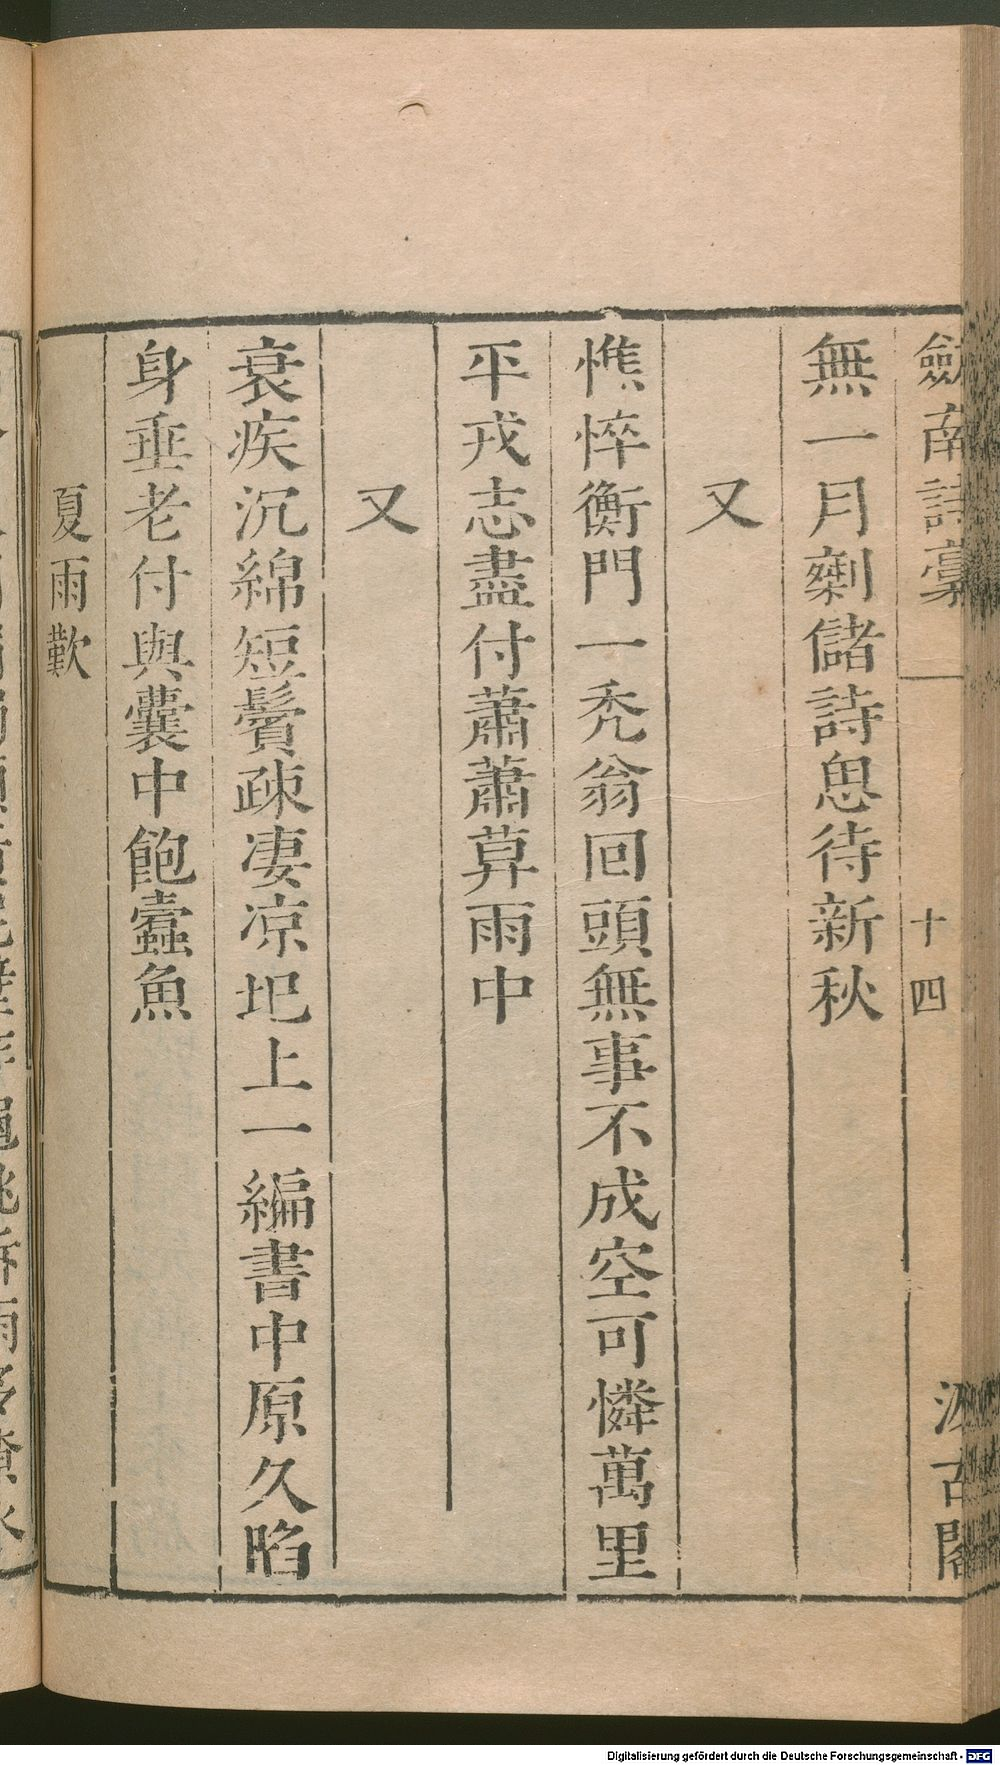 劍南詩稾 十四 汲古閣
無一月剩儲詩思待新秋
又
憔悴衡門一禿翁回頭無事不成空可憐萬里
平戎志盡付蕭蕭莫雨中
又
衰疾沉綿短鬢疎凄凉圯上一編書中原久陷
身垂老付與囊中飽蠹魚
夏雨歎
Digitalisierung gefördert durch die Deutsche Forschungsgemeinschaft - DFG